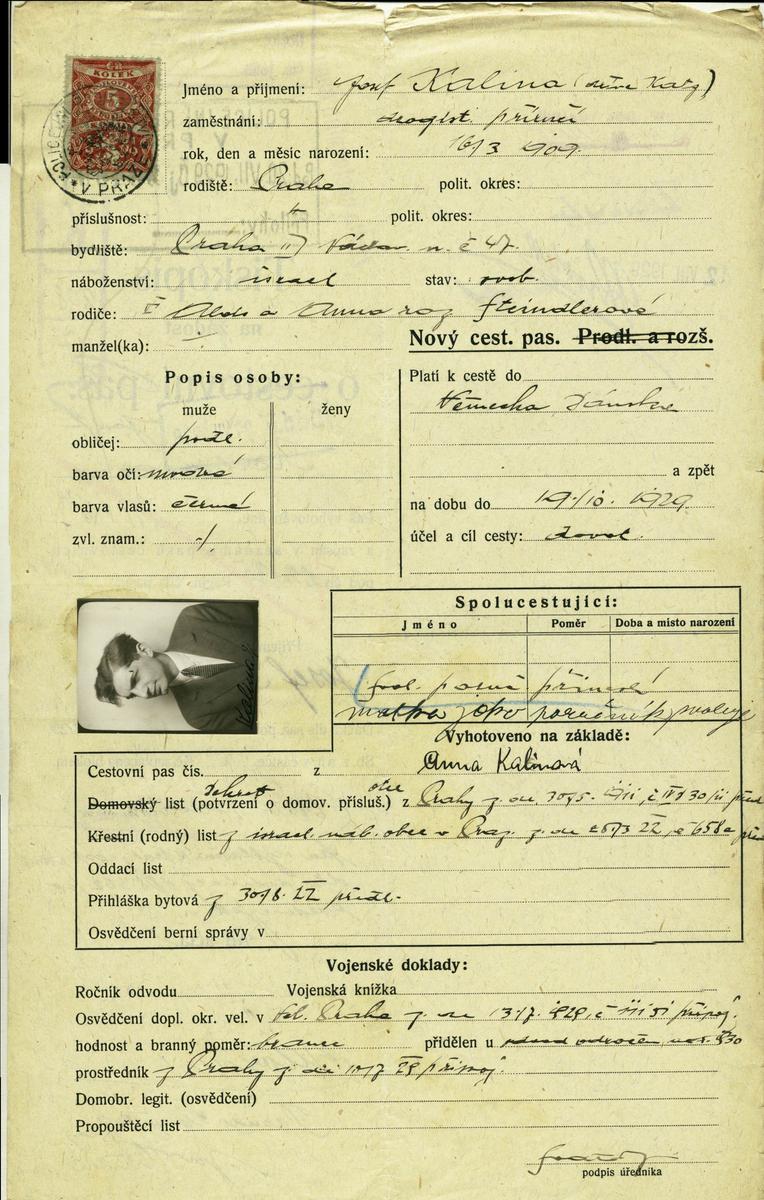 KOLEK
5
V PRAZE
Jméno a příjmení: Josef Kalina (dříve Katz)
zaměstnání: drogist. příručí
rok, den a měsíc narození: 16/3 1909.
rodiště: Praha polit. okres:
příslušnost: " polit. okres:
bydliště: Praha II Václav. n. č 47
náboženství: israel stav: svob.
rodiče: a Anna roz Steindlerové
manžel(ka):
Nový cest. pas. Prodl. a rozš.
Popis osoby:
muže ženy
obličej: podl.
barva očí: modré
barva vlasů: černé
zvl. znam.: /
Platí k cestě do
Německa Dánska
a zpět
na dobu do 19/10. 1929
účel a cíl cesty: dovol.
Kalina J.
Spolucestující:
Jméno Poměr Doba a místo narození
matka jako poručník svoluje
Vyhotoveno na základě:
Anna Kalinová
Cestovní pas čís. z
Dekret obce
Domovský list (potvrzení o domov. přísluš.) z Prahy z. de.
Křestní (rodný) list z israel. náb. obce v Praz. z. de
Oddací list
Přihláška bytová z 30/8. předl.
Osvědčení berní správy v
Vojenské doklady:
Ročník odvodu Vojenská knížka
Osvědčení dopl. okr. vel. v Praha z. de 13/7. 1929, č připoj.
hodnost a branný poměr: branec přidělen u odvod odročen
prostředník z Prahy z. de připoj.
Domobr. legit. (osvědčení)
Propouštěcí list
podpis úředníka